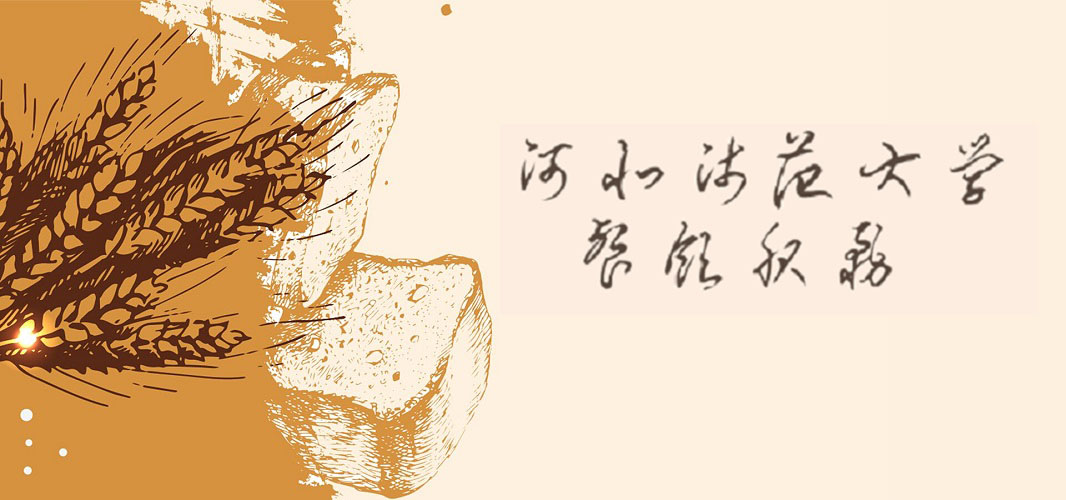 河北师范大学
餐饮服务